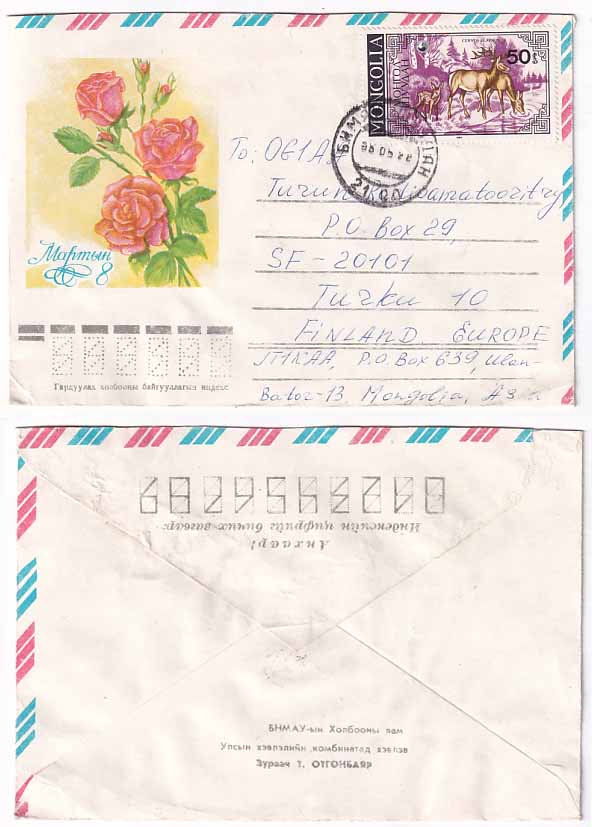 MONGOLIA
МОНГОЛ ШУУДАН
CERVUS ELAPHUS
50
To: OG1AA
P.O. Box 29,
SF - 20101
Turku 10
FINLAND, EUROPE
JT1KAA, P.O. Box 639, Ulan-
Bator-13, Mongolia, Asia
Мартын
8
Гардуулах холбооны байгууллагын индекс
0123456789
Индексийн цифрийг бичих загвар
Анхаар!
БНМАУ-ын Холбооны яам
Улсын хэвлэлийн комбинатад хэвлэв
Зураач Т. ОТГОНБАЯР